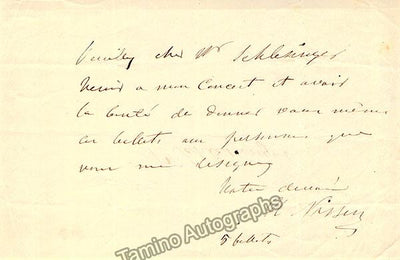 Veuillez cher Mr Schlesinger
venir a mon Concert et avoir
la bonté de donner vous même
ces billets aux personnes que
vous me désignez
Votre dévouée
Nissen
5 billets
Tamino Autographs